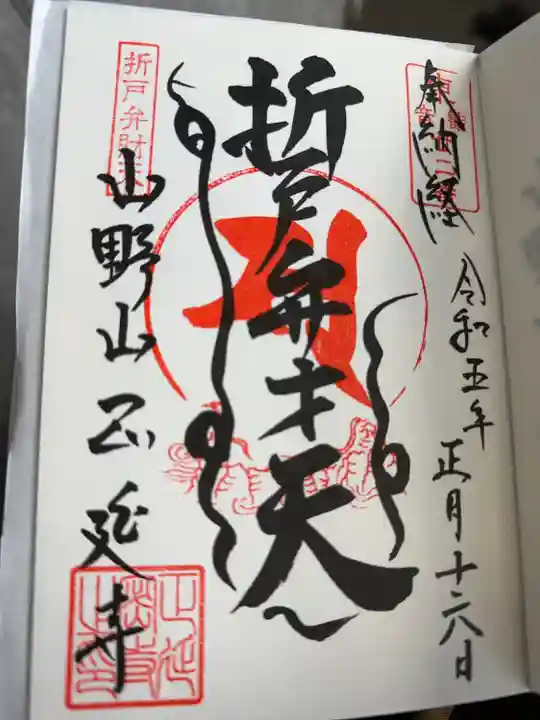 奉納経
令和五年
正月十六日
折戸弁才天
折戸弁財天
山野山正延寺